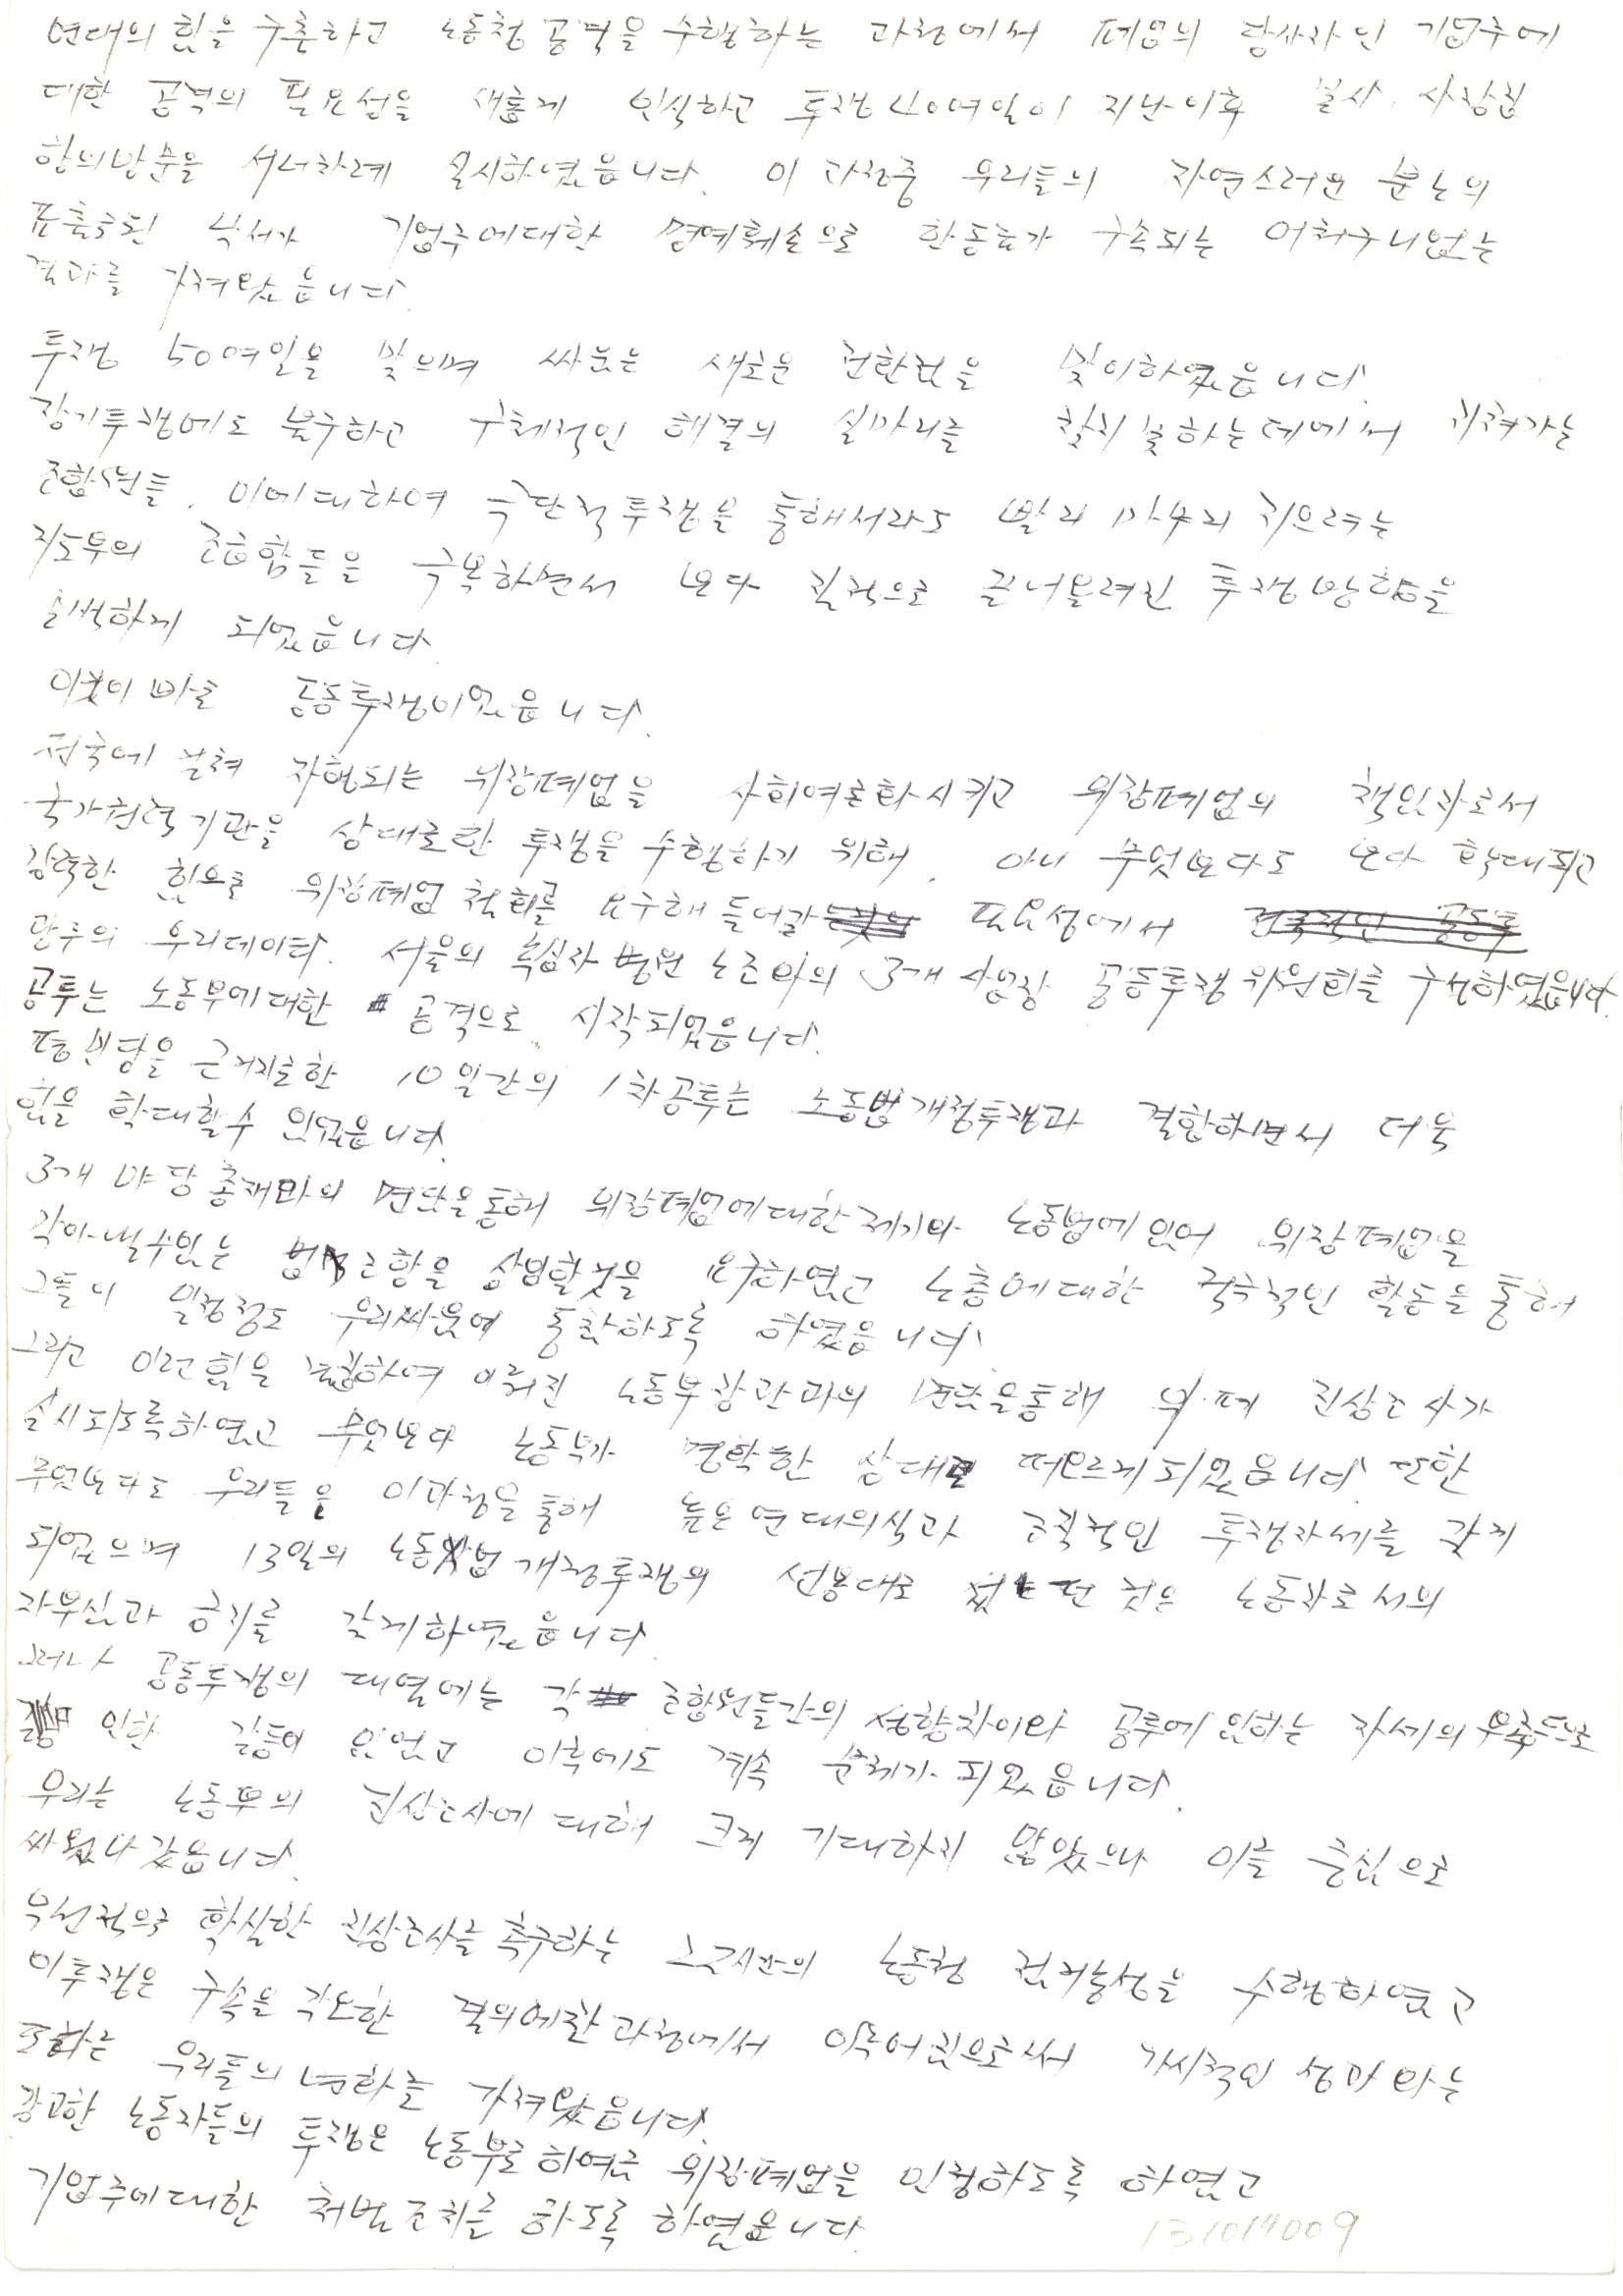 연대의 힘을 구축하고 노동청 공격을 수행하는 과정에서 폐업의 당사자인 기업주에
대한 공격의 필요성을 새롭게 인식하고 투쟁 40여일이 지난이후 본사, 사장집
항의방문을 서너차례 실시하였읍니다. 이 과정중 우리들의 자연스러운 분노의
표출로된 낙서가 기업주에대한 명예훼손으로 한동료가 구속되는 어처구니없는
결과를 가져왔읍니다.
투쟁 50여일을 맞으며 싸움은 새로운 전환점을 맞이하였읍니다.
장기투쟁에도 불구하고 구체적인 해결의 실마리를 찾지 못하는데에서 지쳐가는
조합원들, 이에대하여 극단적 투쟁을 통해서라도 빨리 마무리 지으려는
지도부의 조급함들을 극복하면서 보다 질적으로 끌어올려진 투쟁방향을
모색하게 되었읍니다
이것이 바로 공동투쟁이었읍니다.
전국에 걸쳐 자행되는 위장폐업을 사회여론화시키고 위장폐업의 책임자로서
국가권력기관을 상대로한 투쟁을 수행하기 위해, 아니 무엇보다도 보다 확대되고
강력한 힘으로 위장폐업 철회를 요구해 들어갈 필요성에서
광주의 우리데이타, 서울의 녹십자 병원 노조와의 3개 사업장 공동투쟁위원회를 구성하였읍니다.
공투는 노동부에대한 공격으로 시작되었읍니다.
평민당을 근거지로한 10일간의 1차공투는 노동법개정투쟁과 결합하면서 더욱
힘을 확대할수 있었읍니다.
3개 야당총재와의 면담을통해 위장폐업에대한제기와 노동법에 있어 위장폐업을
막아낼수있는 법조항을 삽입할것을 요구하였고 노총에대한 적극적인 활동을 통해
그들이 일정정도 우리싸움에 동참하도록 하였읍니다.
그리고 이런힘을 결집하여 이뤄진 노동부장관과의 면담을통해 위.폐 진상조사가
실시되도록하였고 무엇보다 노동부가 명확한 상대로 떠오르게되었읍니다. 또한
무엇보다도 우리들은 이과정을통해 높은연대의식과 조직적인 투쟁자세를 갖게
되었으며 13일의 노동법개정투쟁의 선봉대로 섰던 것은 노동자로서의
자부심과 긍지를 갖게하였읍니다.
그러나 공동투쟁의 대열에는 각 조합원들간의 성향차이와 공투에 임하는 자세의 부족등으로
인한 갈등이 있었고 이후에도 계속 문제가 되었읍니다.
우리는 노동부의 진상조사에대해 크게 기대하지 않았으나 이를 중심으로
싸워나갔읍니다.
우선적으로 확실한 진상조사를 촉구하는 노동청 점거농성을 수행하였고
이투쟁은 구속을 각오한 결의에찬과정에서 이루어짐으로써 가시적인 성과와는
우리들의 가져왔읍니다.
강고한 노동자들의 투쟁은 노동부로하여금 위장폐업을 인정하도록 하였고
기업주에대한 처벌조치를 하도록 하였읍니다.
131017009